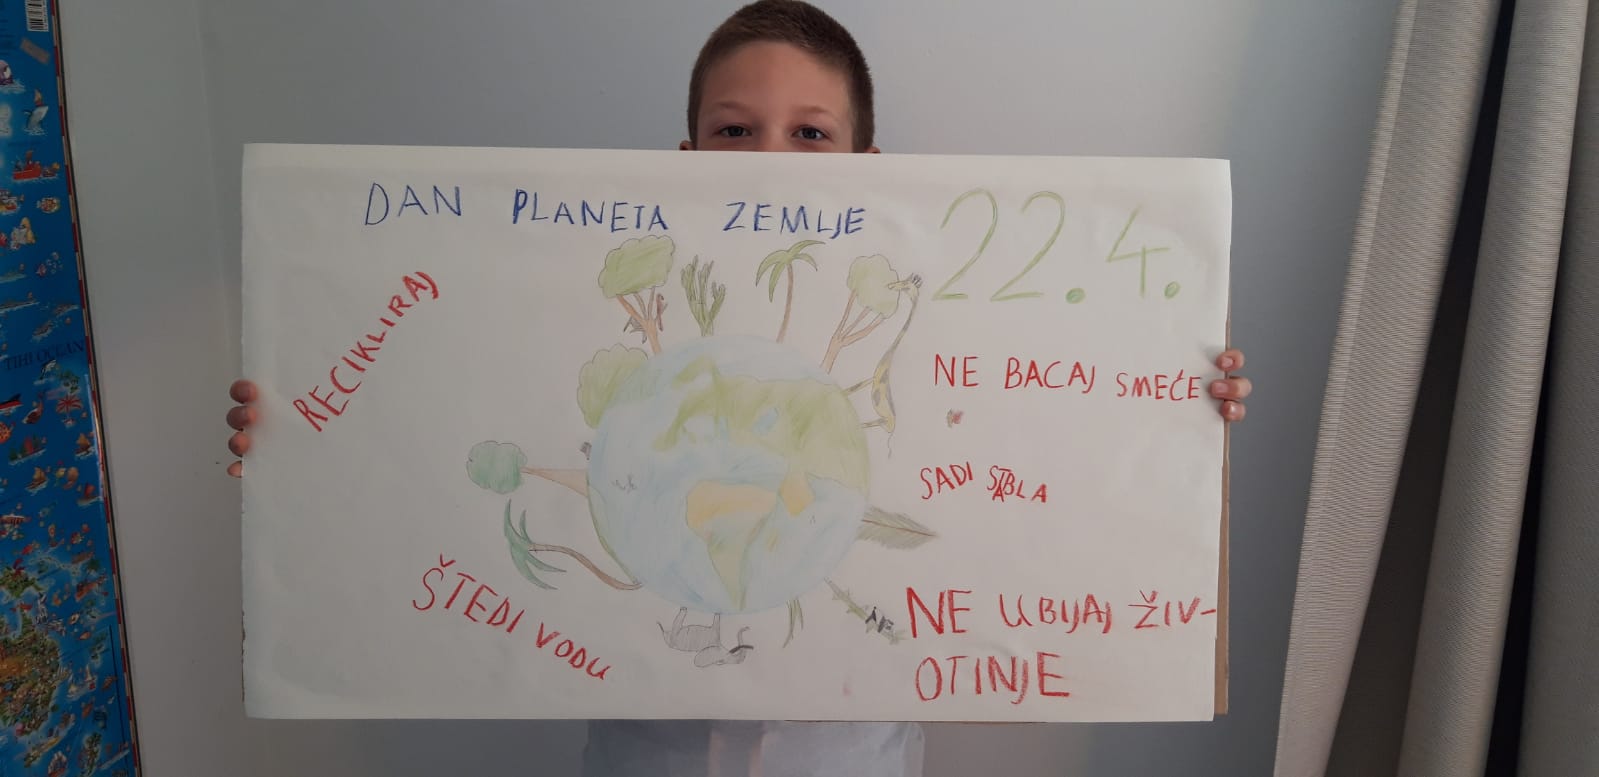 DAN PLANETA ZEMLJE
22.4.
RECIKLIRAJ
NE BACAJ SMEĆE
SADI STABLA
ŠTEDI VODU
NE UBIJAJ ŽIV-
OTINJE
TIHI OCEAN